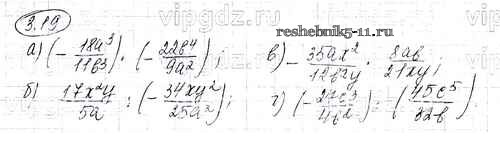 3.19
reshebnik5-11.ru
а) (- 18a³/11b³) · (- 22b⁴/9a²); в) - 35ax²/12b²y · 8ab/21xy;
б) 17x²y/5a : (- 34xy²/25a²); г) (- 21c³/4b²) : (45c⁵/32b)